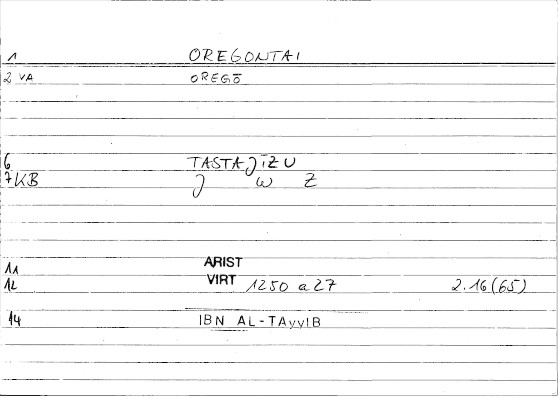 1 OREGONTAI
2 VA OREGŌ
6 TASTAJĪZU
7 KB J W Z
11 ARIST
12 VIRT 1250 a27 2.16(65)
14 IBN AL-TAyyIB